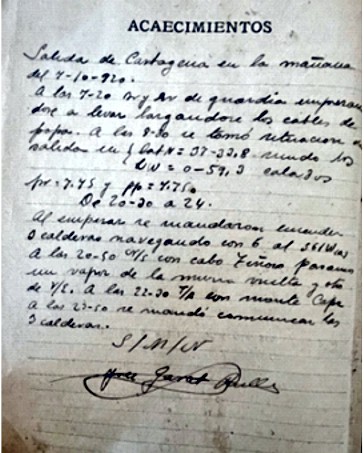 ACAECIMIENTOS
Salida de Cartagena en la mañana
del 7-10-920.
A las 7-20 Br y Er de guardia empezan
dose a levar largandose los cables de
popa. A las 8-30 se tomó situacion de
salida en { lat N = 37-33,8 siendo los
L W = 0-59,3 calados
pr = 7.45 y pp = 4.750
De 20-30 a 24.
Al empezar se mandaron encender
3 calderas navegando con 6 al
A las 20-50 con cabo Tiñoso pasamos
un vapor de la misma vuelta y otro
de V/E. A las 22-30 T/A con monte Cope
A las 23-50 se mandó comunicar las
3 calderas.
S/M/N